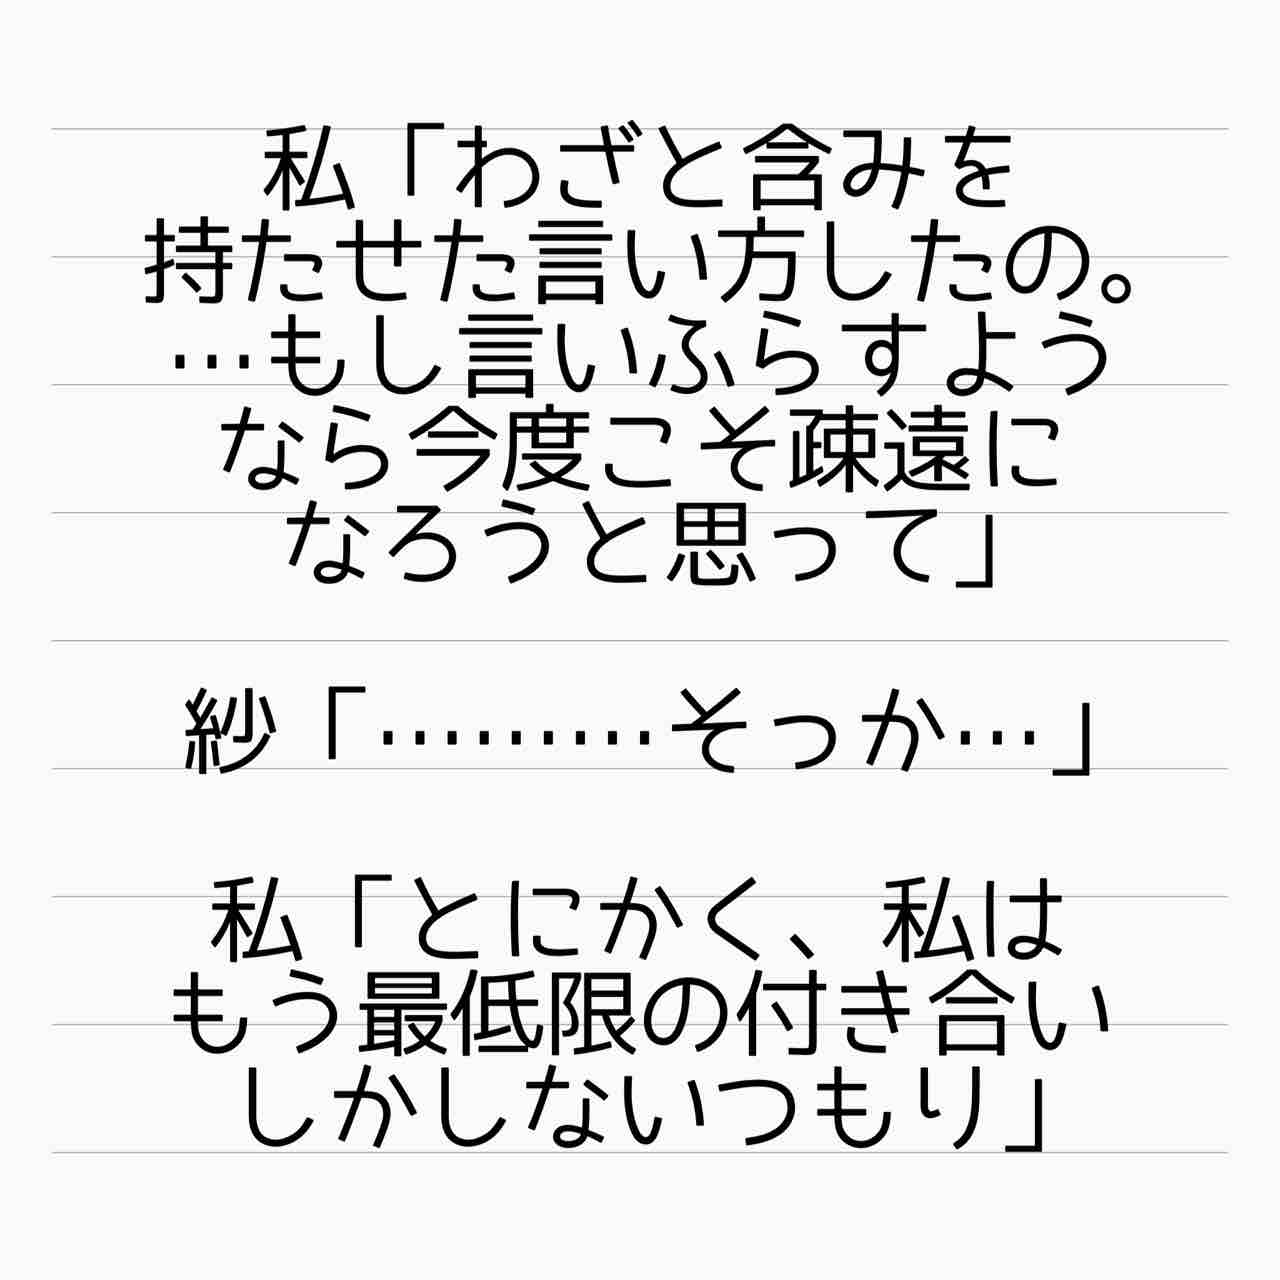 私「わざと含みを
持たせた言い方したの。
…もし言いふらすよう
なら今度こそ疎遠に
なろうと思って」
紗「………そっか…」
私「とにかく、私は
もう最低限の付き合い
しかしないつもり」